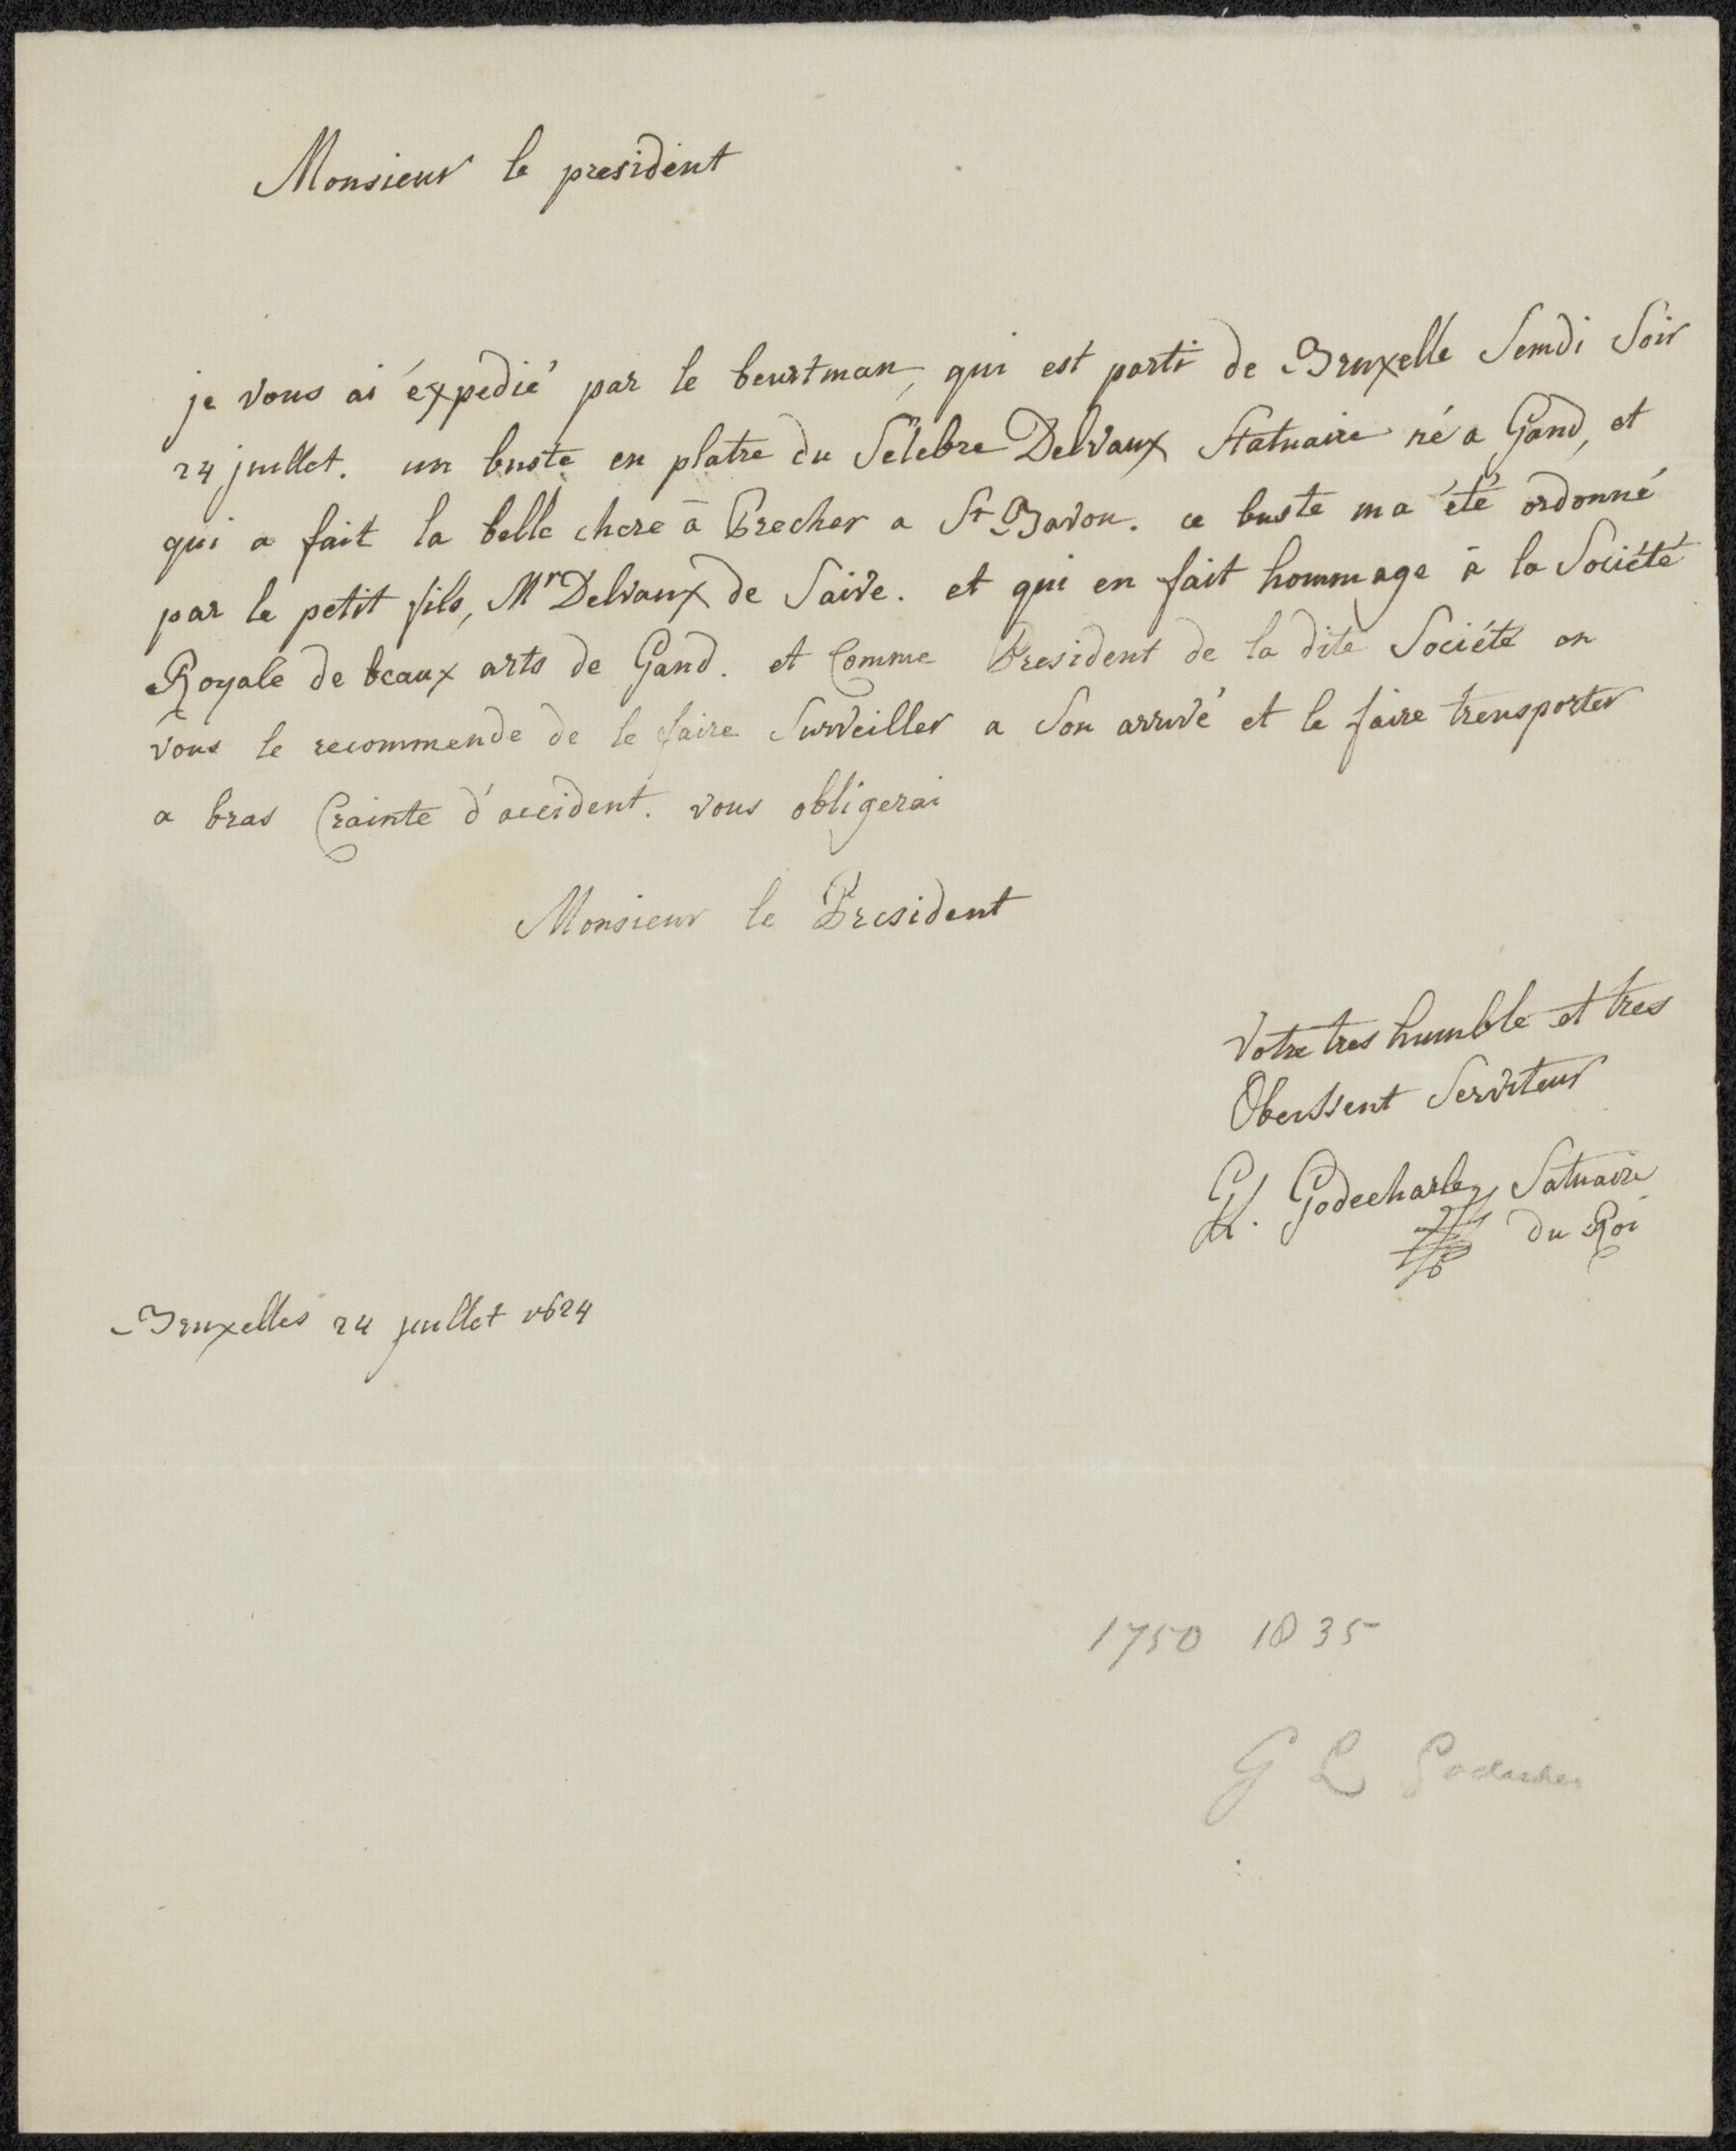 Monsieur le president
je vous ai éxpedié par le beurtman, qui est parti de Bruxelle Semdi Soir
24 juillet. un buste en platre du Sélebre Delvaux Statuaire né a Gand, et
qui a fait la belle chere à Precher a St Bavon. ce buste ma été ordonné
par le petit fils, Mr Delvaux de Saive. et qui en fait hommage à la Société
Royale de beaux arts de Gand. et Comme President de la dite Société on
vous le recommende de le faire Surveiller a Son arrivé et le faire trensporter
a bras Crainte d'accident. vous obligerai
Monsieur le President
Votre tres humble et tres
Obeissent Serviteur
GL. Godecharle Satuaire
du Roi
Bruxelles 24 juillet 1824
1750 1835
G L